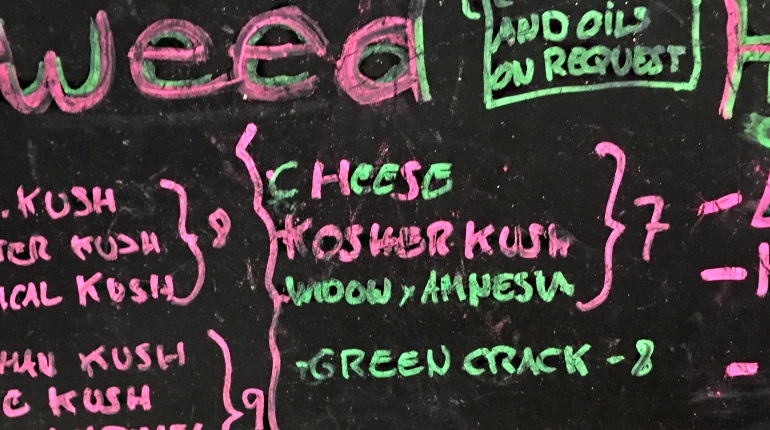 weed
AND OILS
ON REQUEST
H
. KUSH
TER KUSH
ICAL KUSH
8
HAN KUSH
C KUSH
9
CHEESE
KOSHER KUSH
WIDOW x AMNESIA
7
-GREEN CRACK - 8